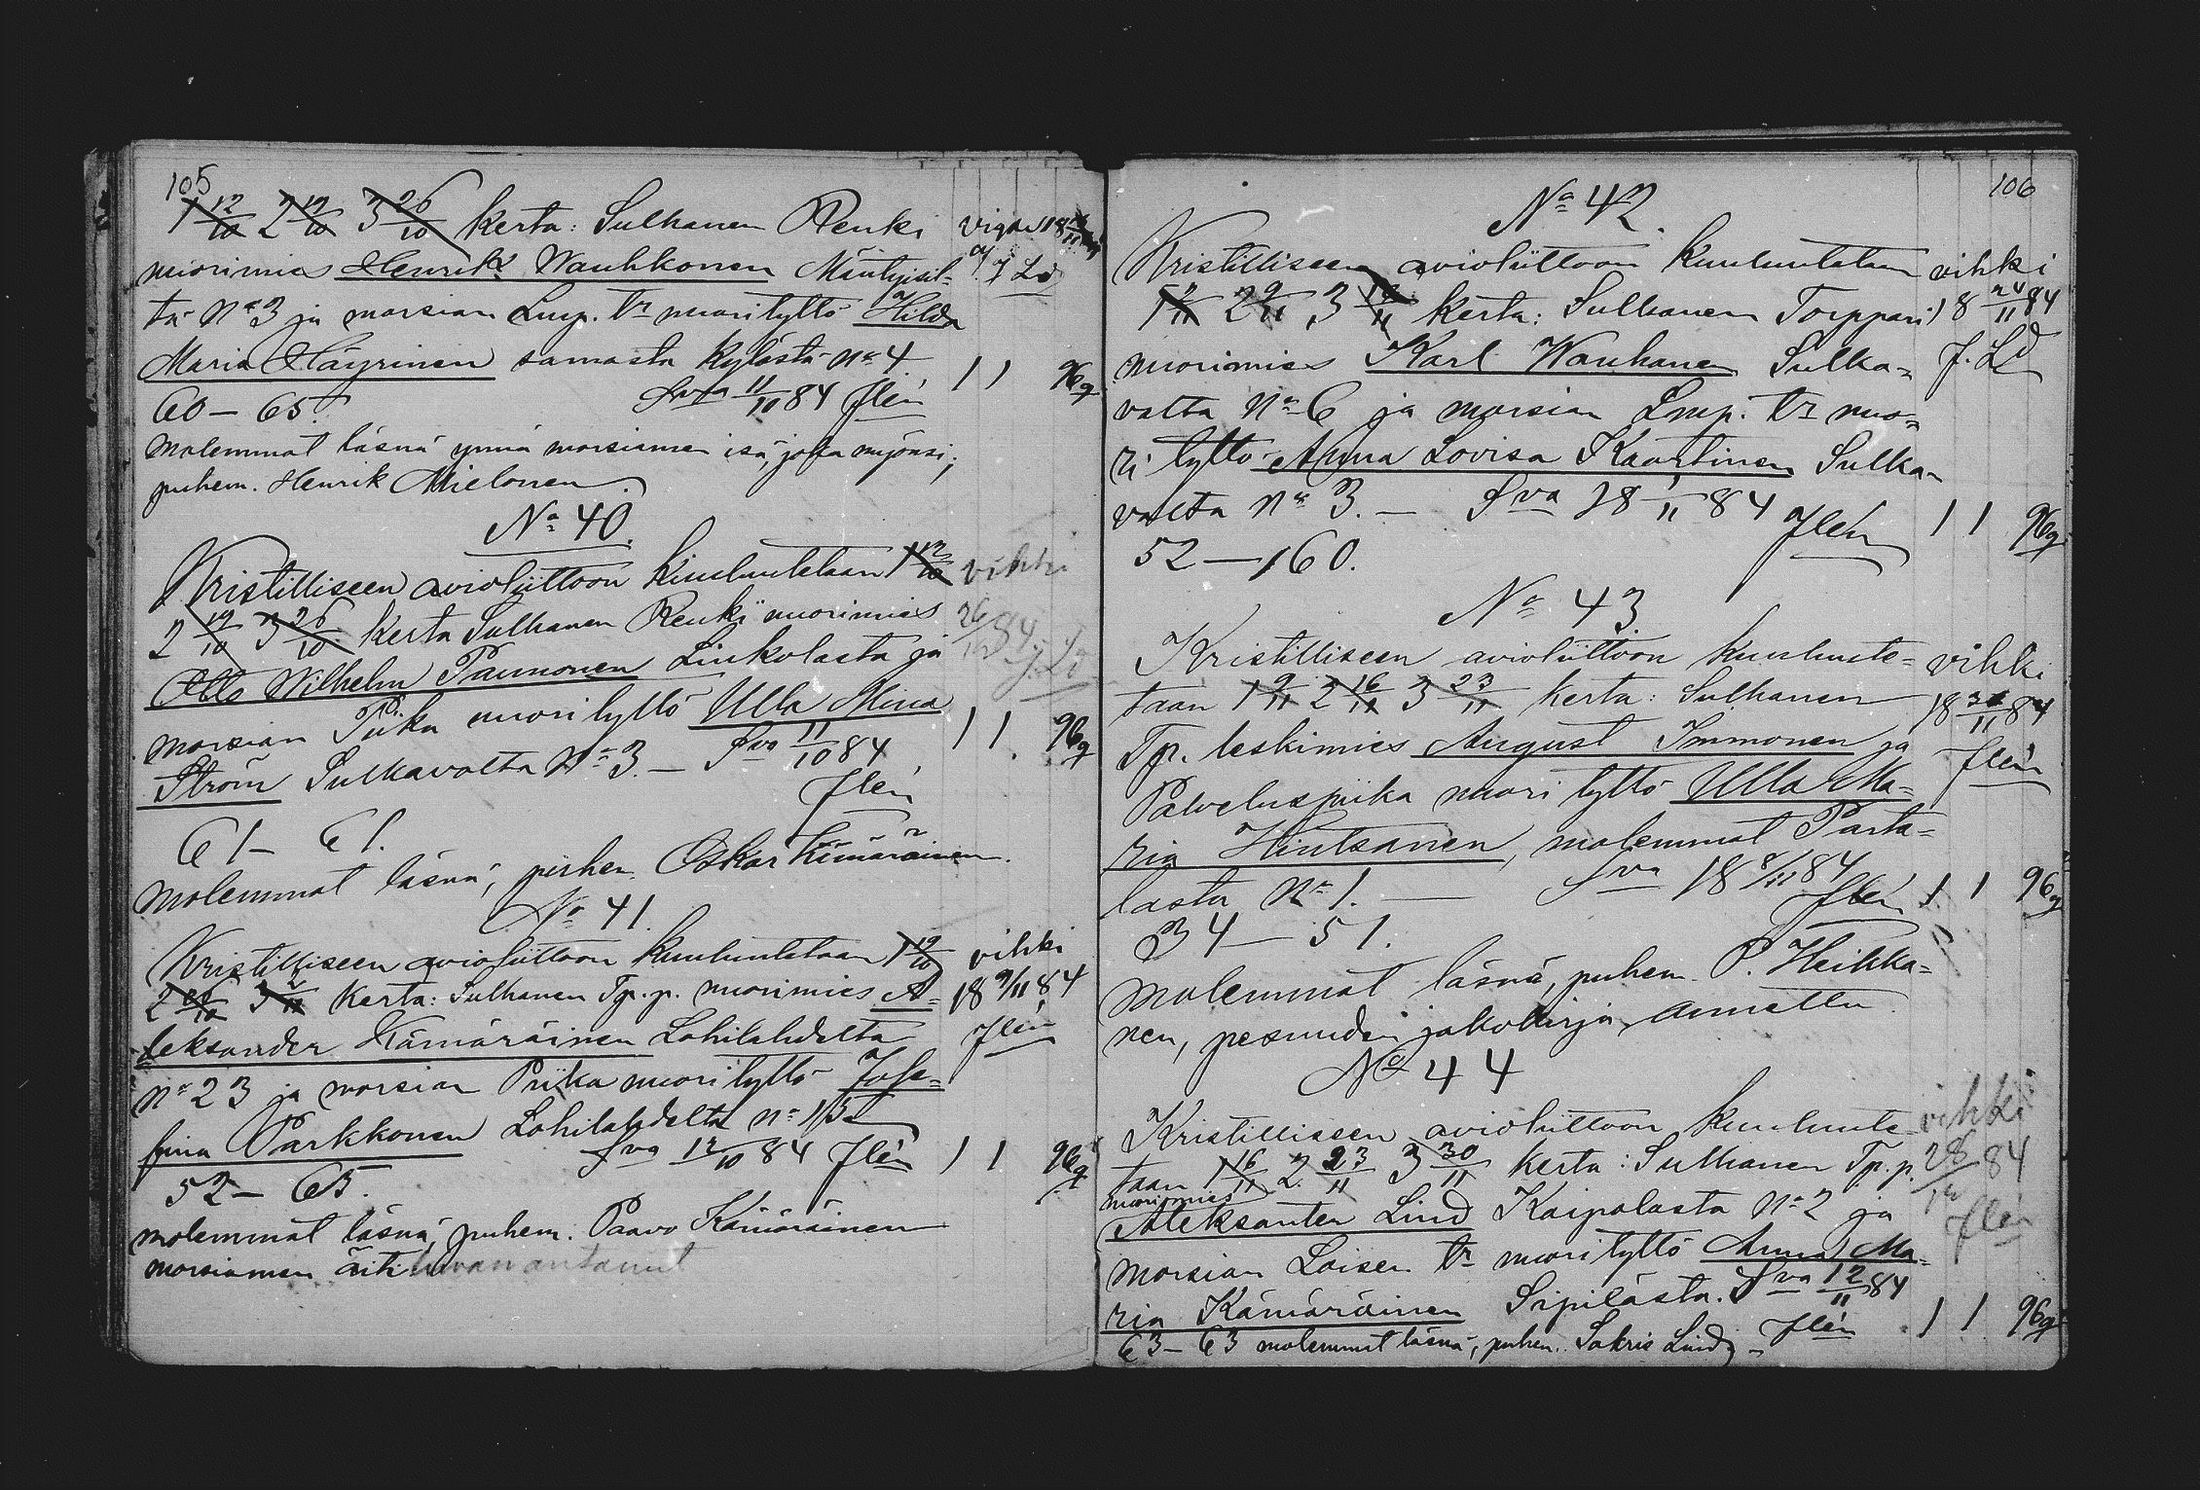 105
1 12/10 2 19/10 3 26/10 kerta: Sulhanen Renki
nuorimies Henrik Wauhkonen Mäntyisil-
tä No 3 ja morsian Lmp. tr nuorityttö Hilda
Maria Häyrinen samasta kylästä no 4.
60 — 65. Sva 11/10 84 Jlén 1 1 96
molemmat läsnä ynnä morsiamen isä, joka myönsi;
puhem. Henrik Mielonen.
No 40.
Kristilliseen avioliittoon kuulutetaan 1 12/10 vihki
2 19/10 3 26/10 kerta Sulhanen Renki nuorimies 26/ 84
Otto Wilhelm Paunonen Linkolasta ja J. Ld
morsian Piika nuorityttö Ulla Mina 1 1 96
Ström Sulkavalta No 3. — Sva 11/10 84
Jlén
61 — 61.
molemmat läsnä, puhem. Oskar Kämäräinen.
No 41.
Kristilliseen avioliittoon kuulutetaan 1 19/10 vihki
2 26/10 3 2/11 kerta: Sulhanen Tp.p. nuorimies A- 18 9/11 84
leksander Kämäräinen Lohilahdelta Jlén
no 23 ja morsian Piika nuorityttö Jose-
fina Parkkonen Lohilahdelta no
Sva 12/10 84 Jlén 1 1 96
52 — 65.
molemmat läsnä, puhem. Paavo Kämäräinen
morsiamen äiti luvan antanut
106
No 42.
Kristilliseen avioliittoon kuulutetaan vihki
1 2/11 2 9/11 3 16/11 kerta: Sulhanen Torppari 18 24/11 84
nuorimies Karl Wauhanen Sulka- J. Ld
valta No 6 ja morsian Lmp. tr nuo-
ri tyttö Anna Lovisa Kaartinen Sulka-
valta No 3. — Sva 18 1/11 84 Jlén 1 1 96
52 — 60.
No 43
Kristilliseen avioliittoon kuulute- vihki
taan 1 9/11 2 16/11 3 23/11 kerta: Sulhanen 18 30/11 84
Tp. leskimies August Immonen ja Jlén
Palveluspiika nuori tyttö Ulla Ma-
ria Hintsanen, molemmat Parta-
lasta No 1. — Sva 18 8/11 84 Jlén 1 1 96
34 — 51.
molemmat läsnä, puhem. P. Heikka-
nen, pesunden jakokirja annettu
No 44
Kristilliseen avioliittoon kuulute- vihki
taan 1 16/11 2 23/11 3 30/11 kerta: Sulhanen Tp.p. 28/12 84
nuorimies
Aleksanter Lind Kaipolasta No 2 ja Jlén
morsian Loisen tr nuorityttö Anna Ma-
ria Kämäräinen Sipilästa. Sva 12/11 84
63 — 63 molemmat läsnä, puhem. Sakris Lind — Jlén 1 1 96